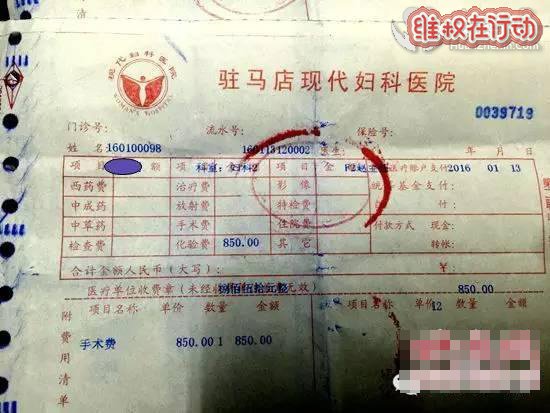 维权在行动
现代妇科医院
WOMAN'S HOSPITAL
驻马店现代妇科医院
0039719
门诊号: 流水号: 保险号:
姓名 160100098 160113120002 医生:
项 目 额 项 科室: 妇科2 项 目 金 医疗账户支付 2016 01 13
西药费 治疗费 影像 统 基金支付:
中成药 放射费 特检费
中草药 手术费 住院费 付款方式 现金:
检查费 化验费 850.00 其它 转帐:
合计金额人民币(大写): ¥:
医疗单位收费章(未经收 无效) 捌佰伍拾元整 850.00
项目名称 单价 数量 金额 项目名称 单价 12 数量 金额
附费用清单
手术费 850.00 1 850.00